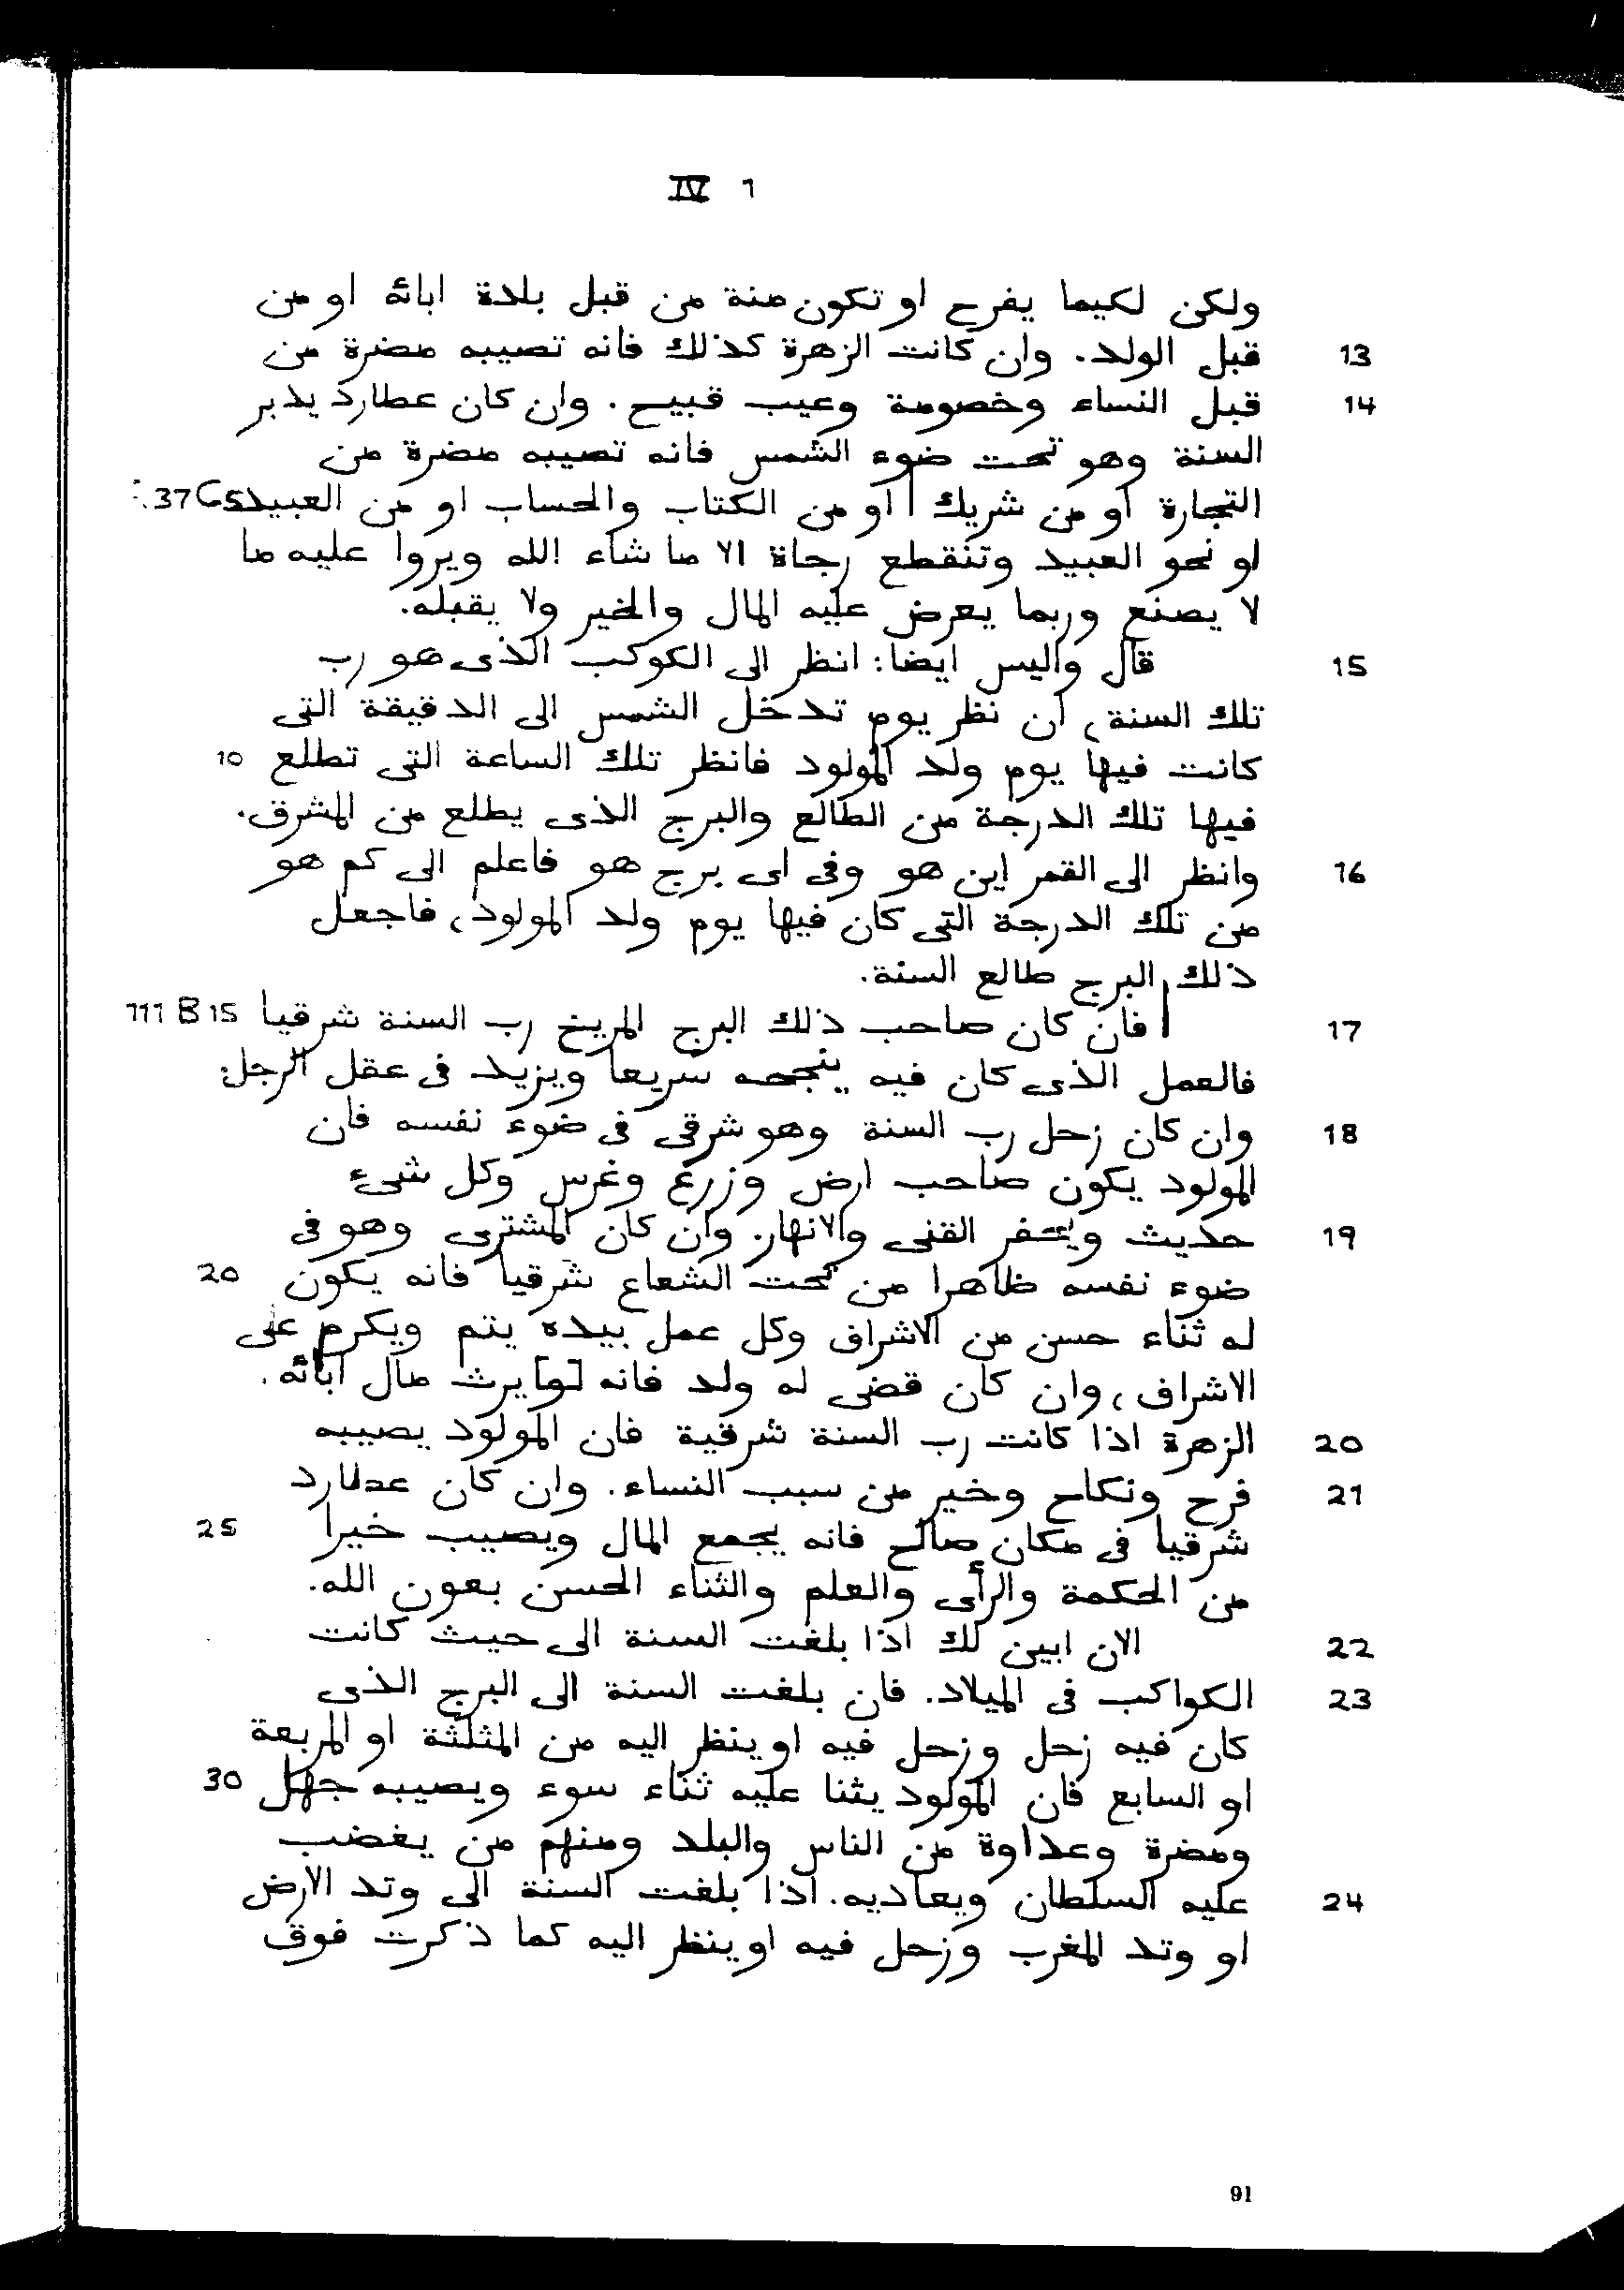 IV 1
ولكن لكيما يفرح او تكون منة من قبل بلدة ابائه او من
13 قبل الولد. وان كانت الزهرة كذلك فانه تصيبه مضرة من
14 قبل النساء وخصومة وعيب قبيح. وان كان عطارد يدبر
السنة وهو تحت ضوء الشمس فانه تصيبه مضرة من
التجارة او من شريك | او من الكتاب والحساب او من العبيد 5 37 G
او نحو العبيد وتنقطع رجاة الا ما شاء الله ويروا عليه ما
لا يصنع وربما يعرض عليه المال والخير ولا يقبله.
15 قال واليس ايضا: انظر الى الكوكب الذى هو رب
تلك السنة، ان نظر يوم تدخل الشمس الى الدقيقة التى
كانت فيها يوم ولد المولود فانظر تلك الساعة التى تطلع 10
فيها تلك الدرجة من الطالع والبرج الذى يطلع من المشرق.
16 وانظر الى القمر اين هو وفى اى برج هو فاعلم الى كم هو
من تلك الدرجة التى كان فيها يوم ولد المولود، فاجعل
ذلك البرج طالع السنة.
17 | فان كان صاحب ذلك البرج المريخ رب السنة شرقيا 15 111 B
فالعمل الذى كان فيه ينجحه سريعا ويزيد فى عقل الرجل.
18 وان كان زحل رب السنة وهو شرقى فى ضوء نفسه فان
المولود يكون صاحب ارض وزرع وغرس وكل شىء
19 حديث ويحفر القنى والانهار. وان كان المشترى وهو فى
ضوء نفسه ظاهرا من تحت الشعاع شرقيا فانه يكون 20
له ثناء حسن من الاشراف وكل عمل بيده يتم ويكرم على
الاشراف، وان كان قضى له ولد فانه [و]يرث مال ابائه.
20 الزهرة اذا كانت رب السنة شرقية فان المولود يصيبه
21 فرح ونكاح وخير من سبب النساء. وان كان عطارد
شرقيا فى مكان صالح فانه يجمع المال ويصيب خيرا 25
من الحكمة والرأى والعلم والثناء الحسن بعون الله.
22 الان ابين لك اذا بلغت السنة الى حيث كانت
23 الكواكب فى الميلاد. فان بلغت السنة الى البرج الذى
كان فيه زحل وزحل فيه او ينظر اليه من المثلثة او المربعة
او السابع فان المولود يثنا عليه ثناء سوء ويصيبه جهل 30
ومضرة وعداوة من الناس والبلد ومنهم من يغضب
24 عليه السلطان ويعاديه. اذا بلغت السنة الى وتد الارض
او وتد المغرب وزحل فيه او ينظر اليه كما ذكرت فوق
91